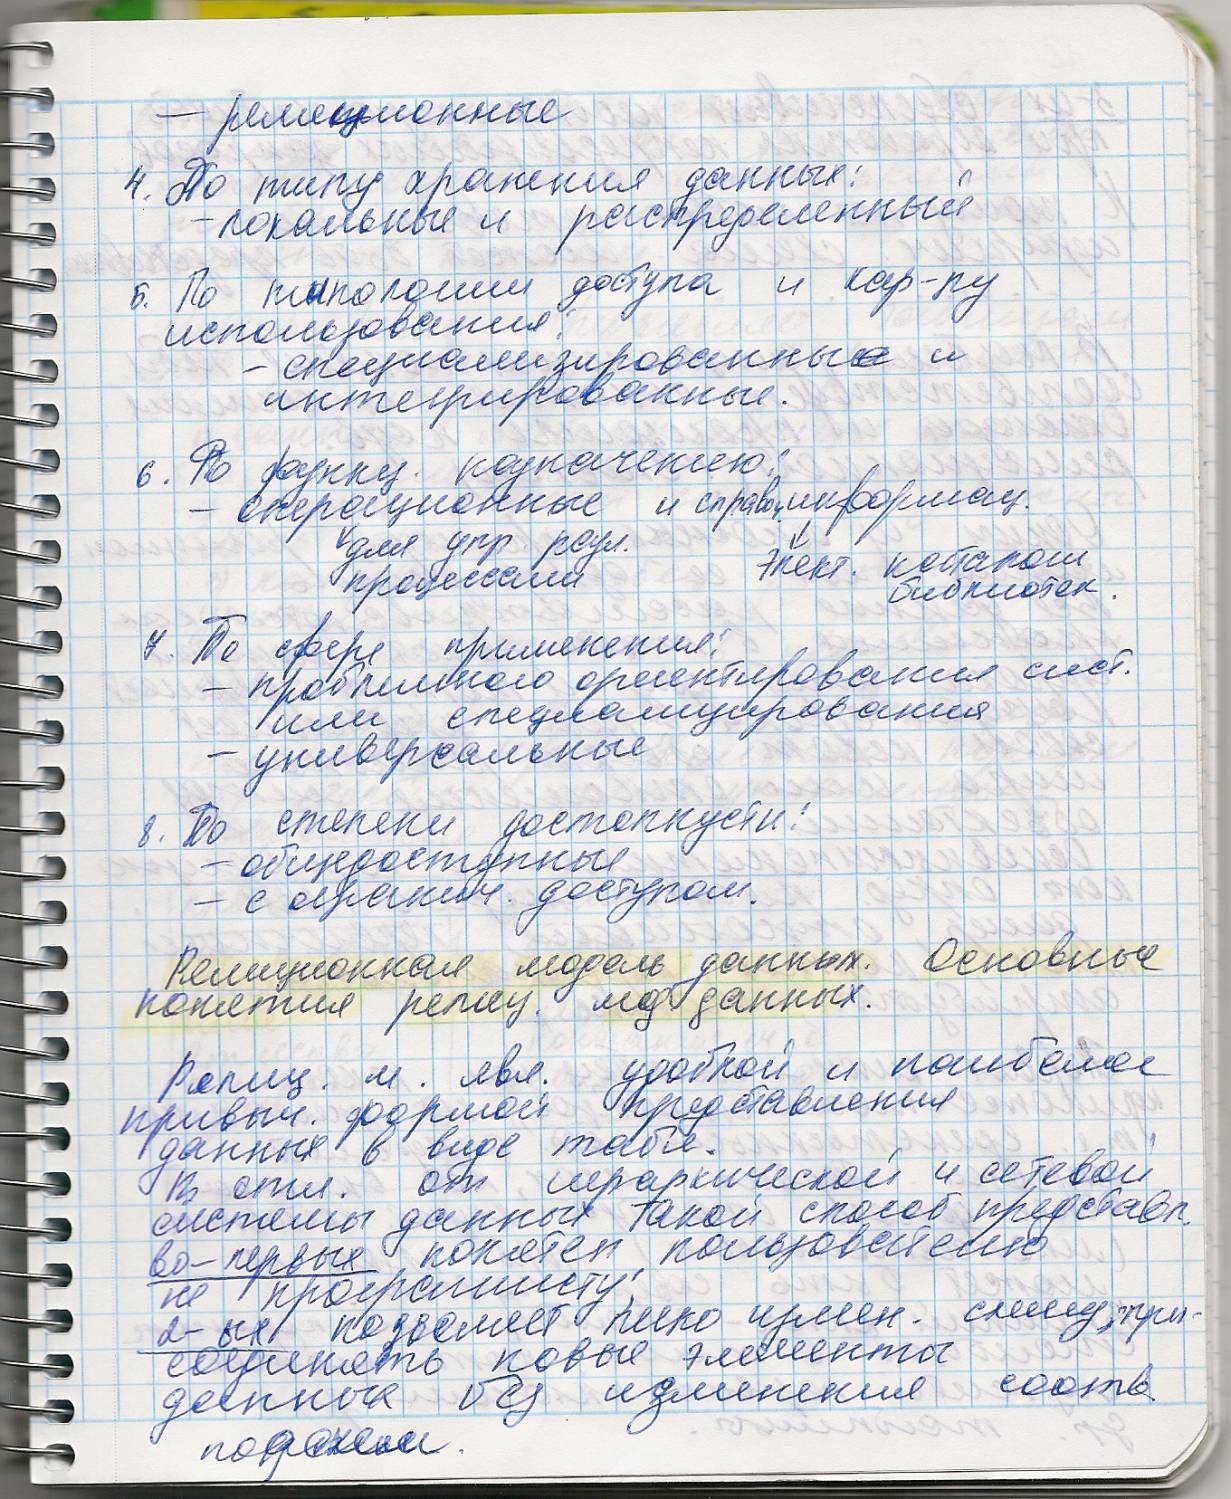 — реляционные
4. По типу хранения данных:
- локальные и распределенный
5. По типологии доступа и хар-ру
использования:
- специализированные и
интегрированные.
6. По функц. назначению:
- операционные и справоч. информац.
для упр. разл.
процессами
элект. каталоги
библиотек.
7. По сфере применения:
- проблемного ориентирования сист.
или специализирования
- универсальные
8. По степени доступности:
- общедоступные
- с огранич. доступом.
Реляционная модель данных. Основные
понятия реляц. мод данных.
Реляц. м. явл. удобной и наиболее
привыч. формой представления
данных в виде табл.
В отл. от иерархической и сетевой
системы данных такой способ представл.
во-первых понятен пользователю
не программисту;
2-ых позволяет легко измен. схему, при-
соединять новые элементы
данных без изменения соотв.